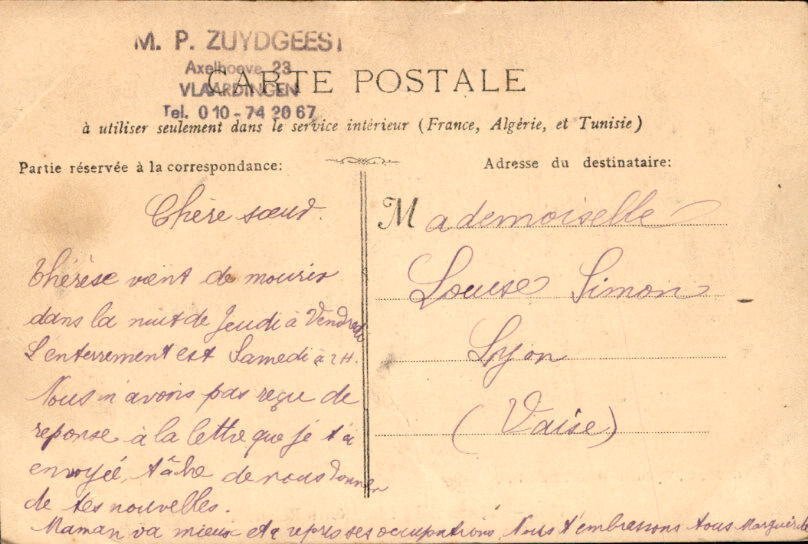 M. P. ZUYDGEEST
Axelhoeve 23
CARTE POSTALE
VLAARDINGEN
Tel. 010-74 20 67
à utiliser seulement dans le service intérieur (France, Algérie, et Tunisie)
Partie réservée à la correspondance:
Adresse du destinataire:
Chère sœur.
Thérèse vient de mourir
dans la nuit de Jeudi à Vendredi
L'enterrement est Samedi à 2H.
Nous n'avons pas reçu de
reponse à la lettre que je t'ai
envoyée, tâche de nous donner
de tes nouvelles.
Maman va mieux et a repris ses occupations. Nous t'embrassons tous Marguerite
Mademoiselle
Louise Simon
Lyon
(Vaise)